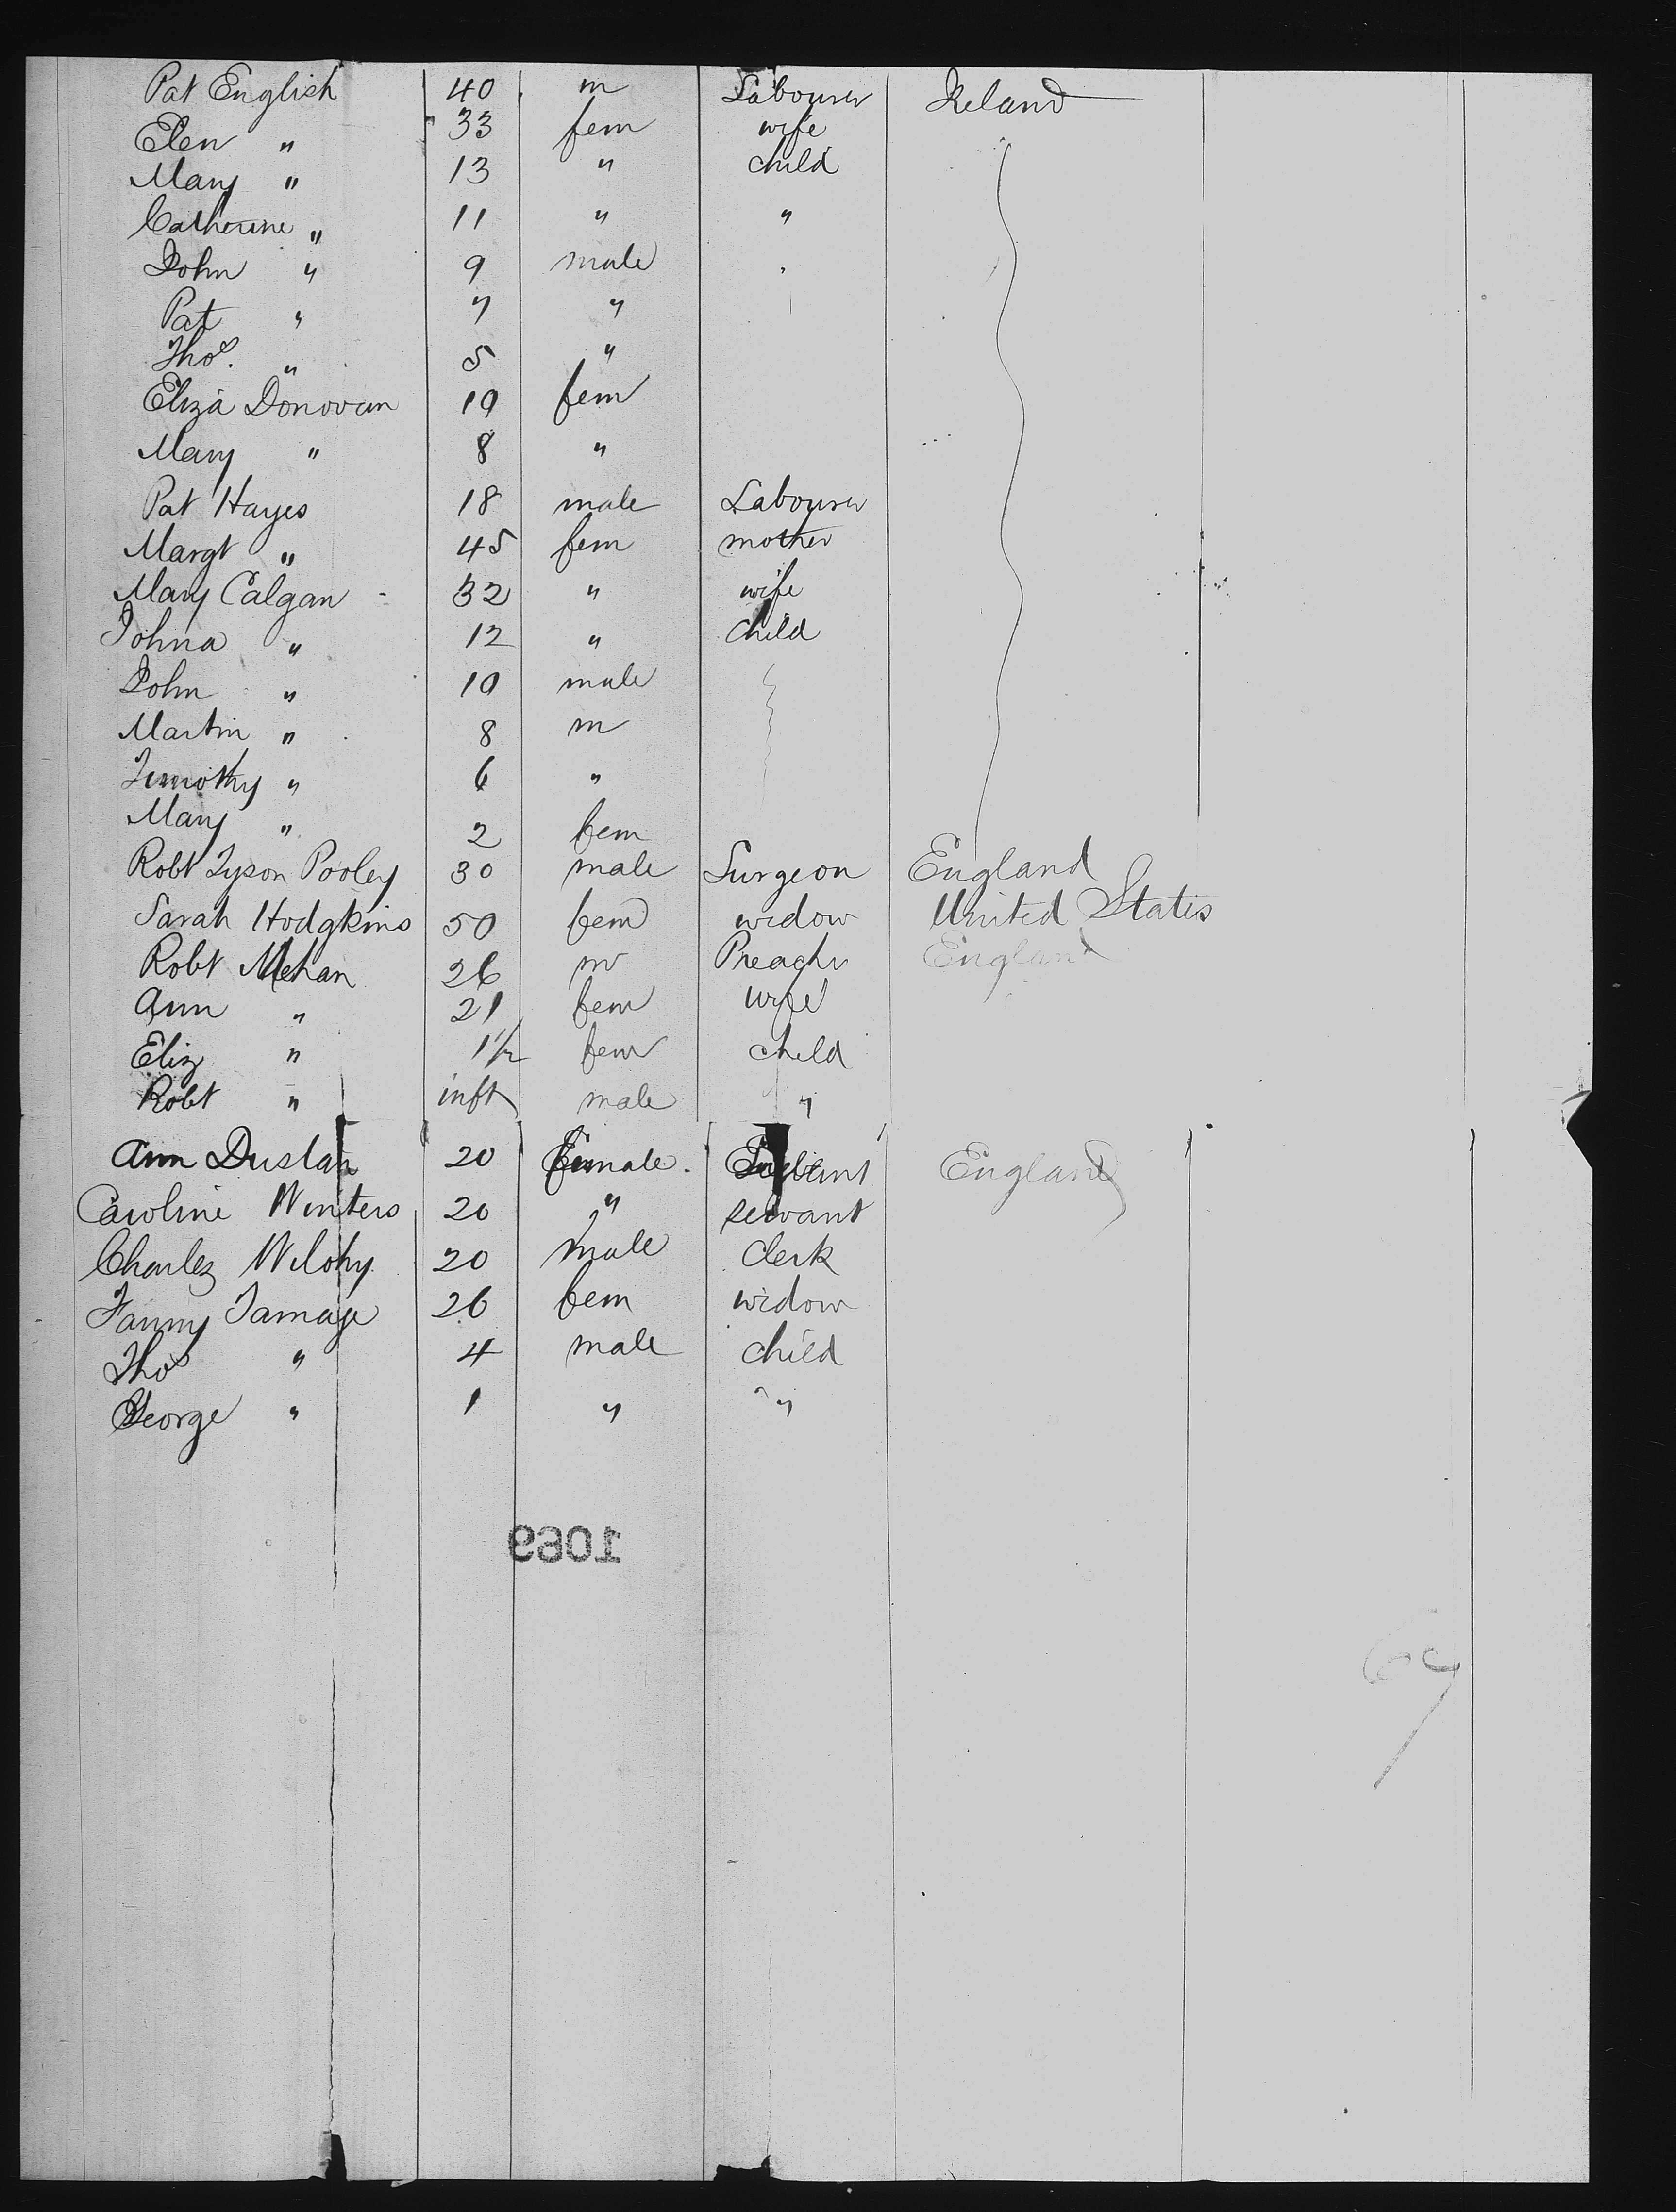 Pat English 40 m Labourer Ireland
Elen " 33 fem wife
Mary " 13 " child
Catherine " 11 " "
John " 9 male
Pat " 7 "
Thos. " 5 "
Eliza Donovan 19 fem
Mary " 8 "
Pat Hayes 18 male Labourer
Margt " 45 fem mother
Mary Calgan 32 " wife
Johna " 12 " Child
John " 10 male
Martin " 8 m
Timothy " 6 "
Mary " 2 fem
Robt Tyson Pooley 30 male Surgeon England
Sarah Hodgkins 50 fem widow United States
Robt Mehan 26 m Preachr England
Ann " 21 fem wife
Eliz " 1 1/2 fem child
Robt " inft male "
Ann Duslan 20 Female. Servant England
Caroline Winters 20 " servant
Charles Welohy 20 male Clerk
Fanny Jamage 26 fem widow
Thos " 4 male child
George " 1 " "
1069